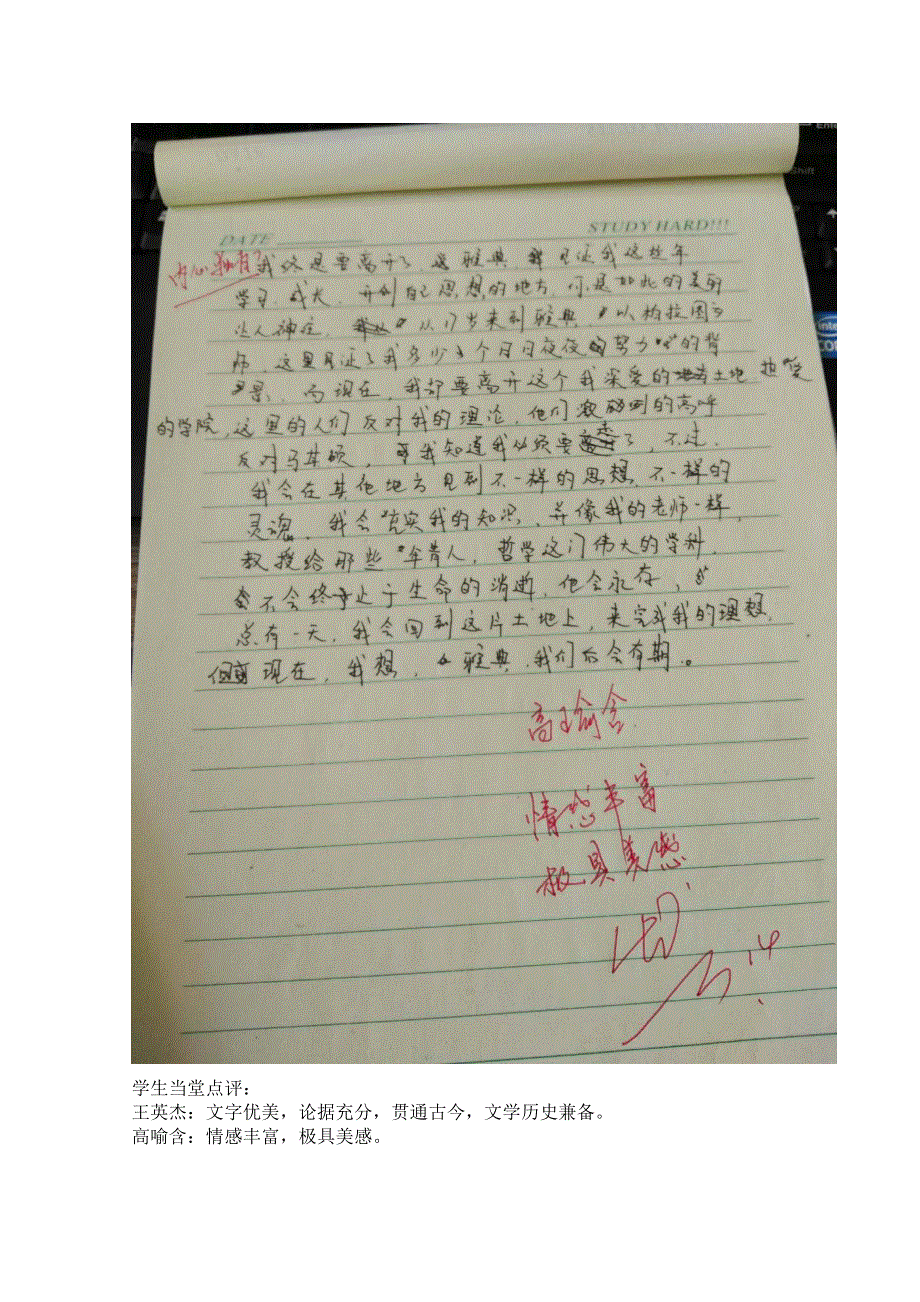 Enter
Shift
DATE
STUDY HARD!!!
内心独白
我终是要离开了，雅典，见证我这些年
学习、成长、开创自己思想的地方，可是如此的美丽
达人神往，从17岁来到雅典，以柏拉图为
师，这里见证了我多少个日日夜夜的努力的背
景，而现在，我却要离开这个我深爱的土地，热爱
的学院，这里的人们反对我的理论，他们的高呼
反对马其顿，我知道我必须要走了，不过，
我会在其他地方见到不一样的思想，不一样的
灵魂，我会充实我的知识，并像我的老师一样，
教授给那些年青人，哲学这门伟大的学科，
不会终止于生命的消逝，他会永存，
总有一天，我会回到这片土地上，来完成我的理想，
但现在，我想，雅典，我们后会有期。
高瑜含
情感丰富
极具美感
学生当堂点评：
王英杰：文字优美，论据充分，贯通古今，文学历史兼备。
高喻含：情感丰富，极具美感。